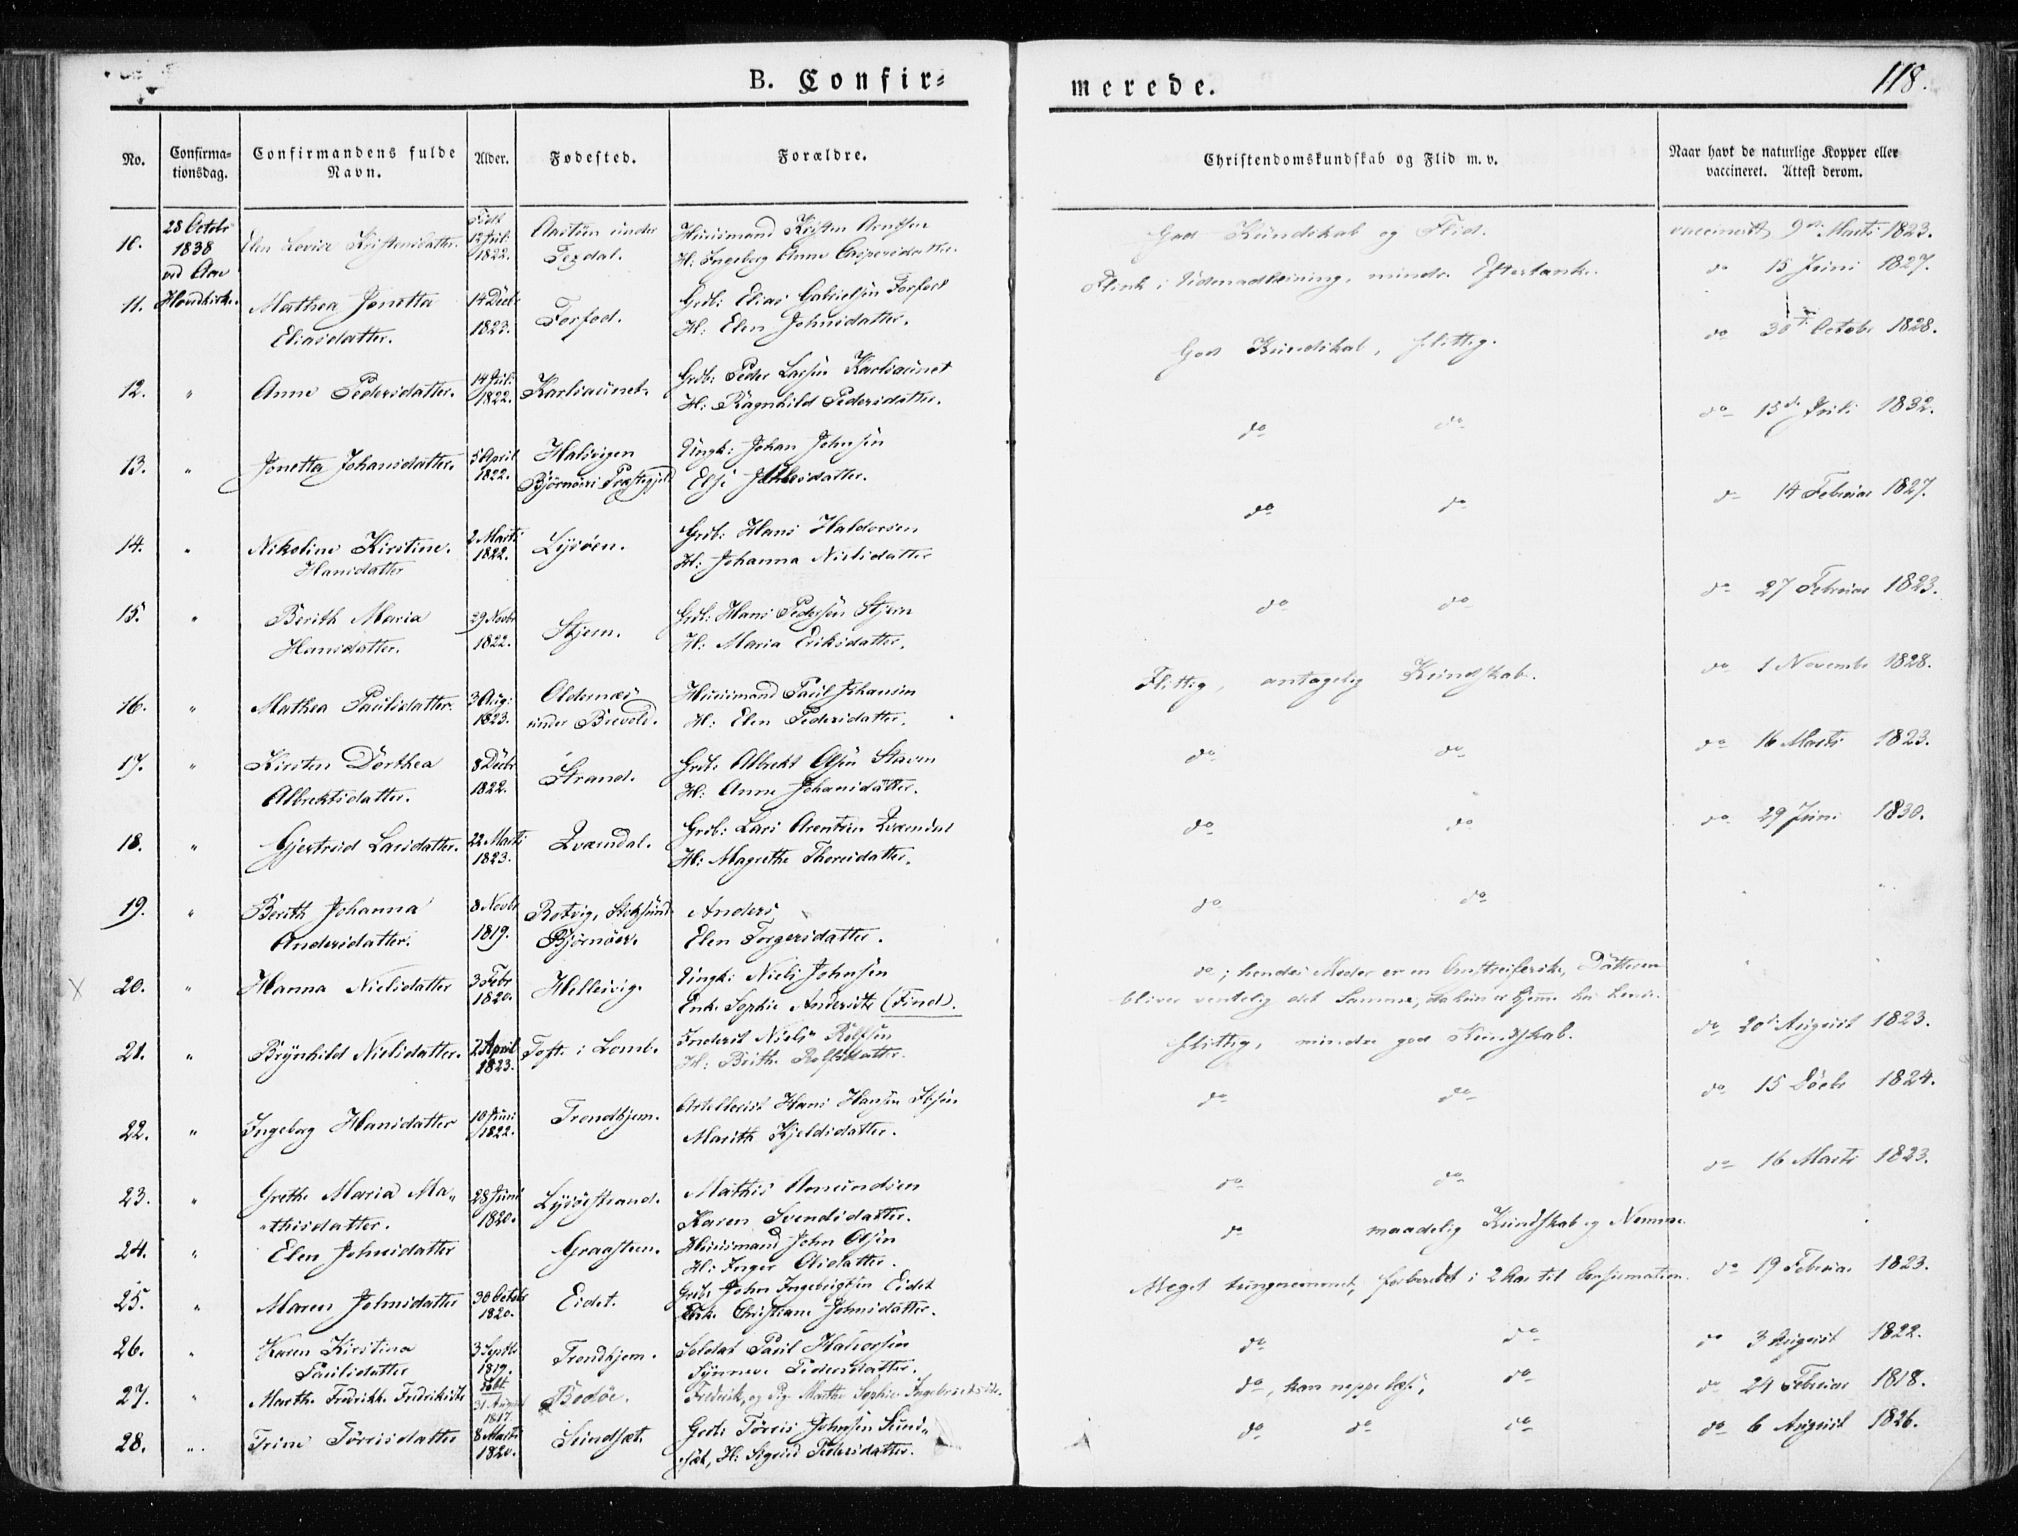 B. Confir-
merede.
118.
No.
Confirma-
tionsdag.
Confirmandens fulde
Navn.
Alder.
Fødested.
Forældre.
Christendomskundskab og Flid m. v.
Naar havt de naturlige Kopper eller
vaccineret. Attest derom.
10.
28 Octobr
1838
ved Aae
Hovedkirke.
Elen Lovise Kristensdatter.
Født
12 Juli
1822.
Aastun under
Fezdal.
Huusmand Kristen Arntsen
H: Ingeborg Anna Caspersdatter.
God Kundskab og Flid.
vaccineret 9de Marts 1823.
11.
Mathea Jonetta
Eliasdatter.
14 Decbr
1823.
Forfod.
Grdb: Elias Gabrielsen Forfod
H: Elen Johnsdatter.
Flink i Udenadlæsning, mindre Eftertanke.
do 15 Juni 1827.
12.
"
Anne Pedersdatter.
14 Juli
1822.
Karlsaunet.
Grdb: Peder Larsen Karlsaunet
H: Ragnhild Pedersdatter.
God Kundskab, flittig.
do 30te Octobr 1828.
13.
"
Jonetta Johansdatter.
5 April
1822.
Halsvigen
Bjørnøers Præstegjeld
Ungk: Johan Johnsen
Else
do do
do 15de Juli 1832.
14.
"
Nikoline Kirstine.
Hansdatter
2 Marts
1822.
Lysøen.
Grdb: Hans Haldorsen
H: Johanna Nielsdatter
do do
do 14 Februar 1827.
15.
"
Berith Maria
Hansdatter.
29 Novbr
1822.
Stjern.
Grdb: Hans Pedersen Stjern
H: Maria Eriksdatter.
do do
do 27 Februar 1823.
16.
"
Mathea Paulsdatter.
3 Aug:
1823.
Oldernæs
under Brevold.
Huusmand Paul Johansen
H: Elen Pedersdatter.
Flittig, antagelig Kundskab.
do 1 Novembr 1828.
17.
"
Kirsten Dorthea
Albrektsdatter.
8 Decbr
1822.
Strand.
Grdb: Albrekt Olsen Staven
H: Anne Johansdatter.
do do
do 16 Marts 1823.
18.
"
Gjertrud Larsdatter.
22 Marts
1823.
Qværndal.
Grdb: Lars Arentsen Qværndal
H: Magrethe Thoresdatter.
do do
do 29 Juni 1830.
19.
"
Berith Johanna
Andersdatter.
8 Novbr
1819.
Rotvig, Stoksund
Bjørnøer.
Anders
Elen Torgersdatter.
do do
" "
X 20.
"
Hanna Nielsdatter
3 Febr
1820.
Hellesvig.
Ungk: Niels Johnsen
Enke Sophie Andersdtr (Find).
do; hendes Moder er en Omstreiferske, Datteren
bliver ventelig det Samme, da hun er hjemme hos hende.
"
21.
"
Brynhild Nielsdatter.
2 April
1823.
Tofte i Lomb.
Inderst Niels Rolfsen
H: Brith. Rolfsdatter.
flittig, mindre god Kundskab.
do 20de August 1823.
22.
"
Ingeborg Hansdatter
10 Juni
1822.
Trondhjem.
Artellerist Hans Hansen
Marith Kjeldsdatter.
do do
do 15 Decbr 1824.
23.
"
Grethe Maria Ma-
-thisdatter.
28 Juni
1820.
Lysøestrand.
Mathis Amundsen
Karen Svendsdatter.
do do
do 16 Marts 1823.
24.
"
Elen Johnsdatter
Graasteen.
Huusmand John Olsen
H: Inger Olsdatter.
do maadelig Kundskab og Nemme.
25.
"
Maren Johnsdatter
30 Octobr
1820.
Eidet.
Grdb. John Ingebrigtsen Eidet
Christiane Johnsdatter.
Meget tungnemmet, forberedet i 2 Aar til Confirmation.
do 19 Februar 1823.
26.
"
Karen Kirstina
Paulsdatter
3 Septbr
1819.
Trondhjem.
Soldat Paul Halvorsen
Synneve Pedersdatter.
do do
do 3 August 1822.
27.
"
Marthe Fredrikke Fredriksdtr
døbt
31 August
1817.
Bodøe.
Frederik, og Pig. Marthe Sophie Ingebrigtsdtr.
do, kan neppe læse, do
do 24 Februar 1818.
28.
"
Trine Toresdatter
8 Marts
1820.
Sundsæt.
Grdb. Tores Johnsen Sund-
-sæt, H: Sigrid Pedersdatter.
do do do
do 6 August 1826.